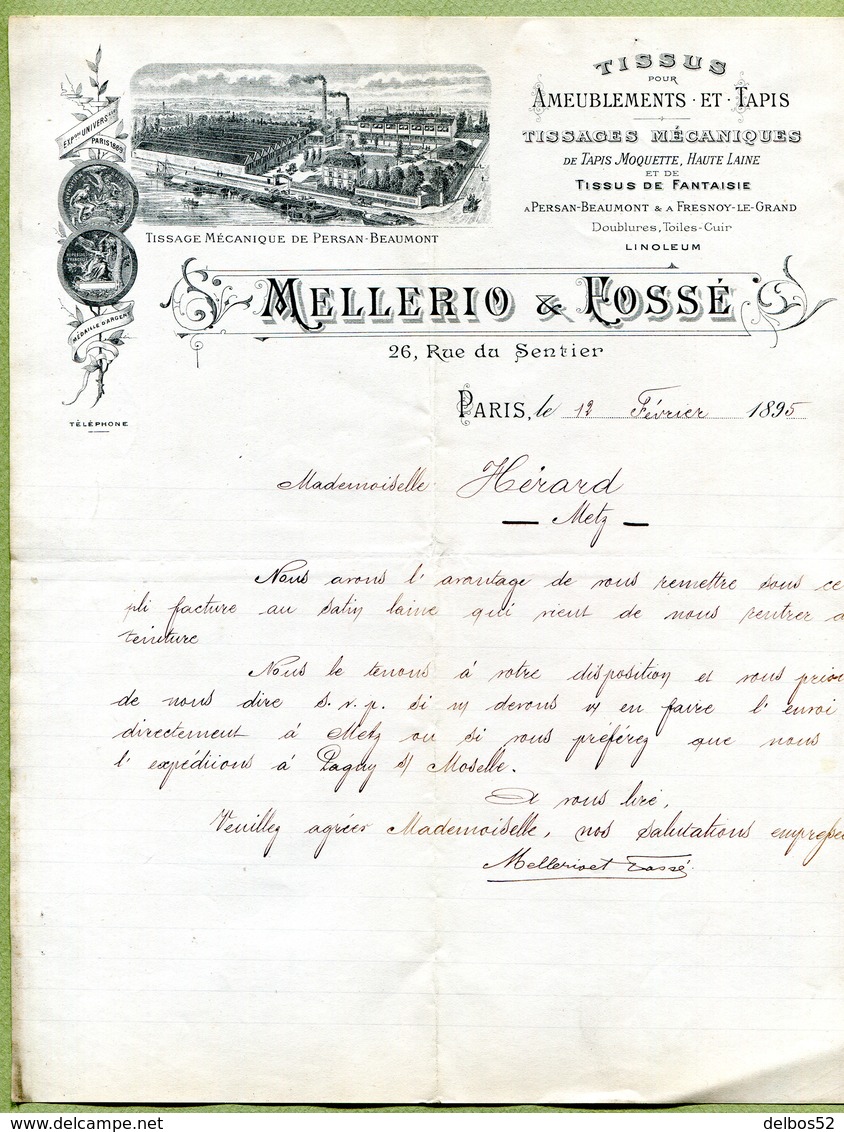 EXPon UNIVERSlle
PARIS 1889
RÉPUBLIQUE
FRANÇAISE
MÉDAILLE D'ARGENT
TÉLÉPHONE
TISSAGE MÉCANIQUE DE PERSAN-BEAUMONT
TISSUS
POUR
AMEUBLEMENTS · ET · TAPIS
TISSAGES MÉCANIQUES
DE TAPIS MOQUETTE, HAUTE LAINE
ET DE
TISSUS DE FANTAISIE
A PERSAN-BEAUMONT & A FRESNOY-LE-GRAND
Doublures, Toiles-Cuir
LINOLEUM
MELLERIO & FOSSÉ
26, Rue du Sentier
PARIS, le 12 Février 1895
Mademoiselle Hérard
— Metz —
Nous avons l'avantage de vous remettre sous ce
pli facture au satin laine qui vient de nous rentrer
teinture
Nous le tenons à votre disposition et vous
de nous dire s.v.p. si nous devons en faire l'envoi
directement à Metz ou si vous préférez que nous
l'expédiions à Pagny s/ Moselle.
A vous lire,
Veuillez agréer Mademoiselle, nos salutations
Mellerio et Fossé
delbos52